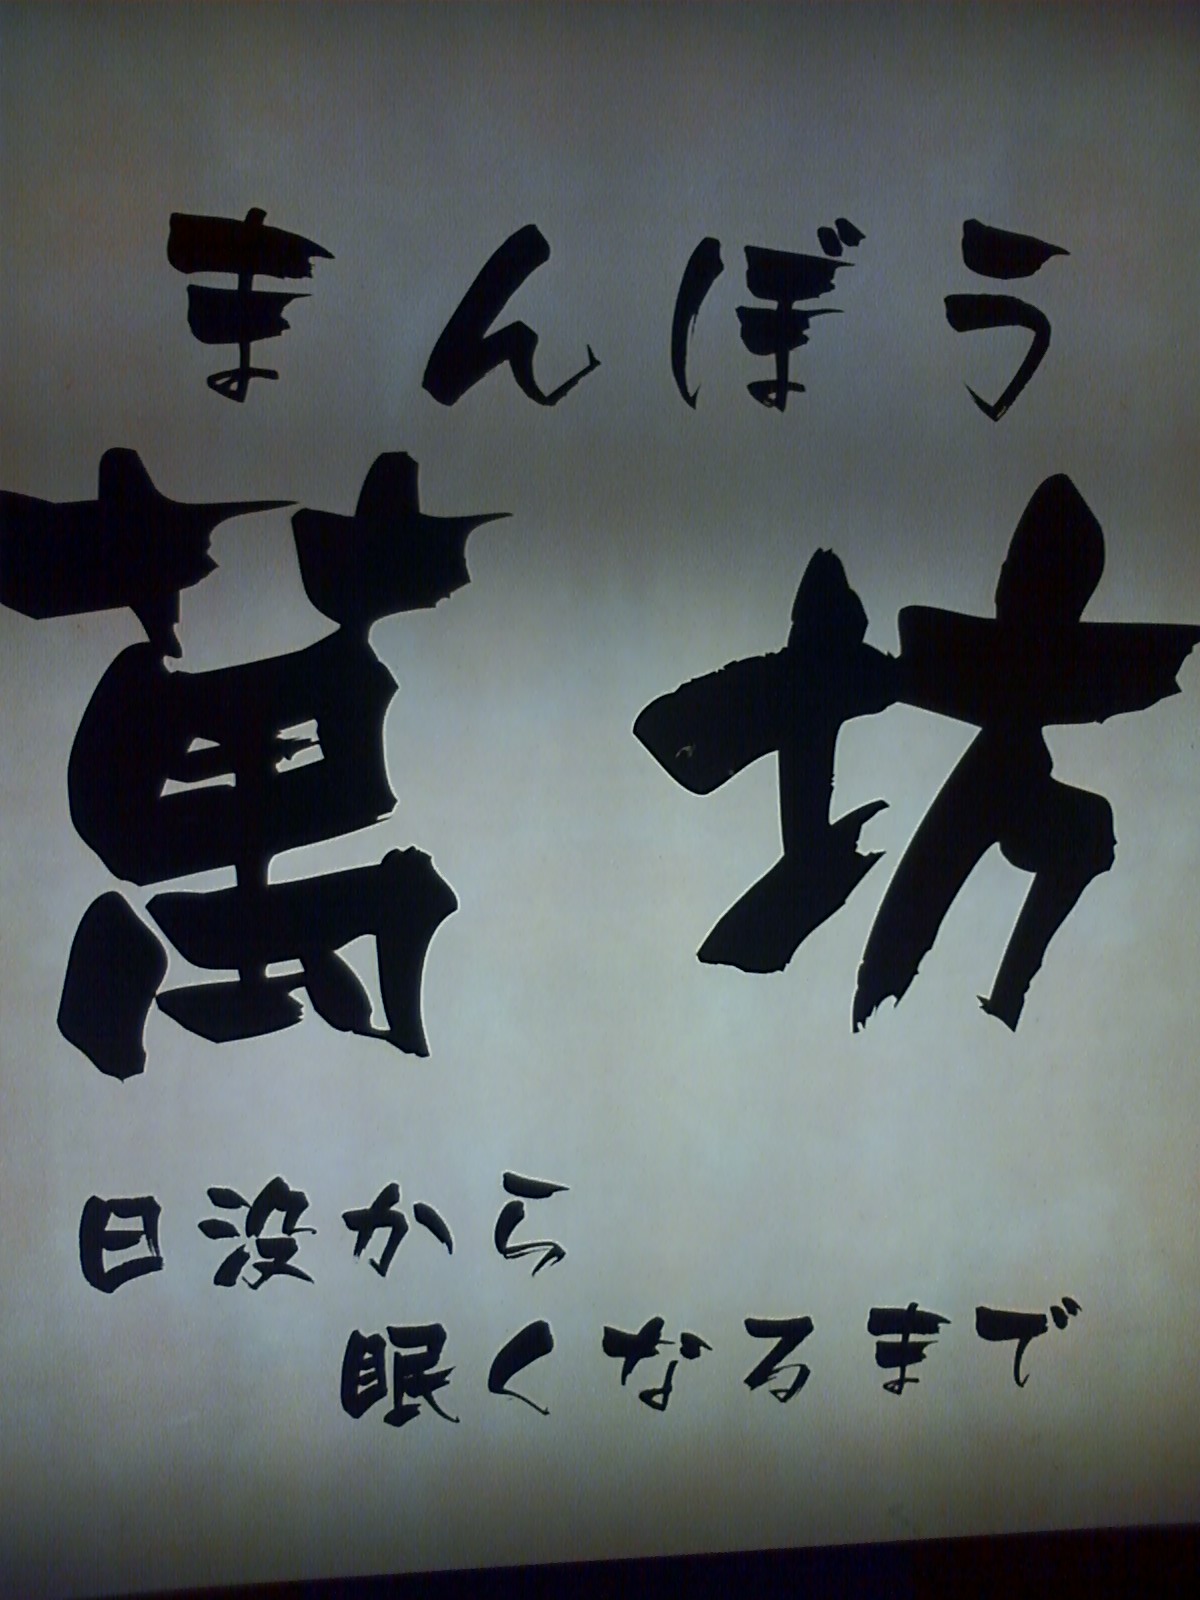 まんぼう
萬坊
日没から
眠くなるまで